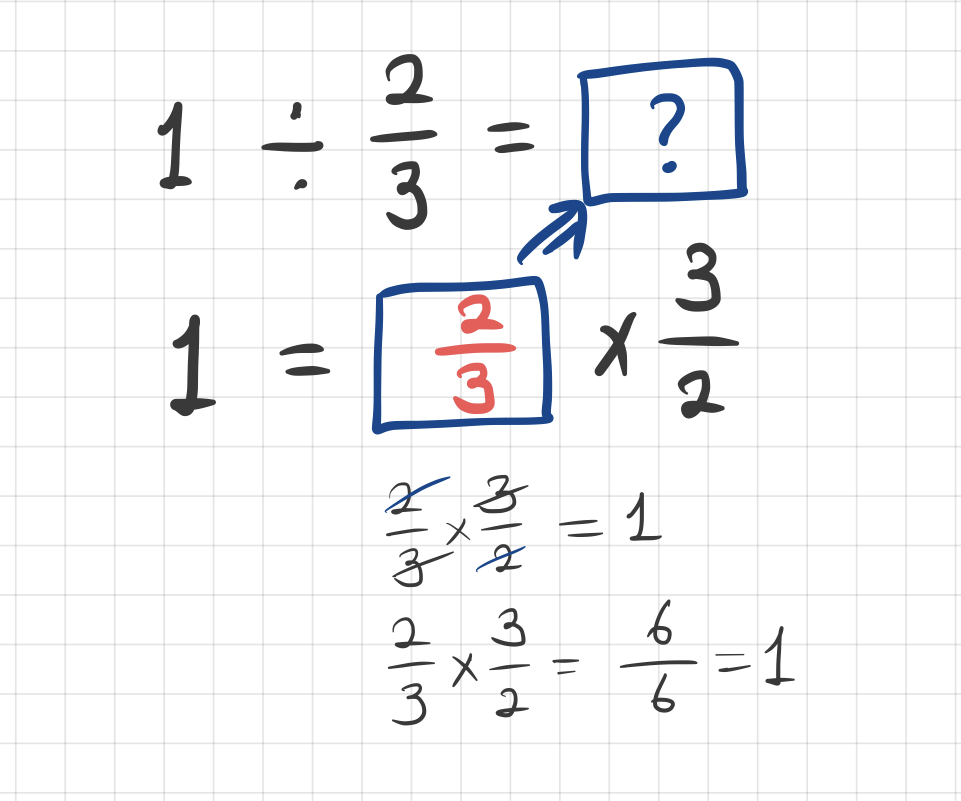 1 ÷ 2/3 = ?
1 = 2/3 × 3/2
2/3 × 3/2 = 1
2/3 × 3/2 = 6/6 = 1